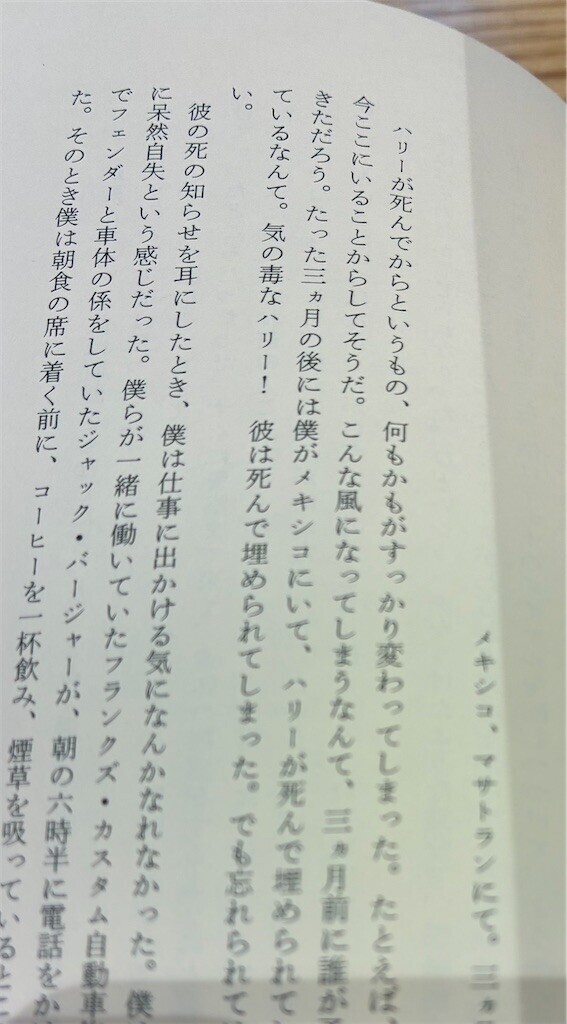 メキシコ、マサトランにて。三ヵ
ハリーが死んでからというもの、何もかもがすっかり変わってしまった。たとえば、
今ここにいることからしてそうだ。こんな風になってしまうなんて、三ヵ月前に誰が
きただろう。たった三ヵ月の後には僕がメキシコにいて、ハリーが死んで埋められて
ているなんて。気の毒なハリー！　彼は死んで埋められてしまった。でも忘れられて
い。
彼の死の知らせを耳にしたとき、僕は仕事に出かける気になんかなれなかった。僕
に呆然自失という感じだった。僕らが一緒に働いていたフランクズ・カスタム自動車
でフェンダーと車体の係をしていたジャック・バージャーが、朝の六時半に電話をか
た。そのとき僕は朝食の席に着く前に、コーヒーを一杯飲み、煙草を吸っているとこ